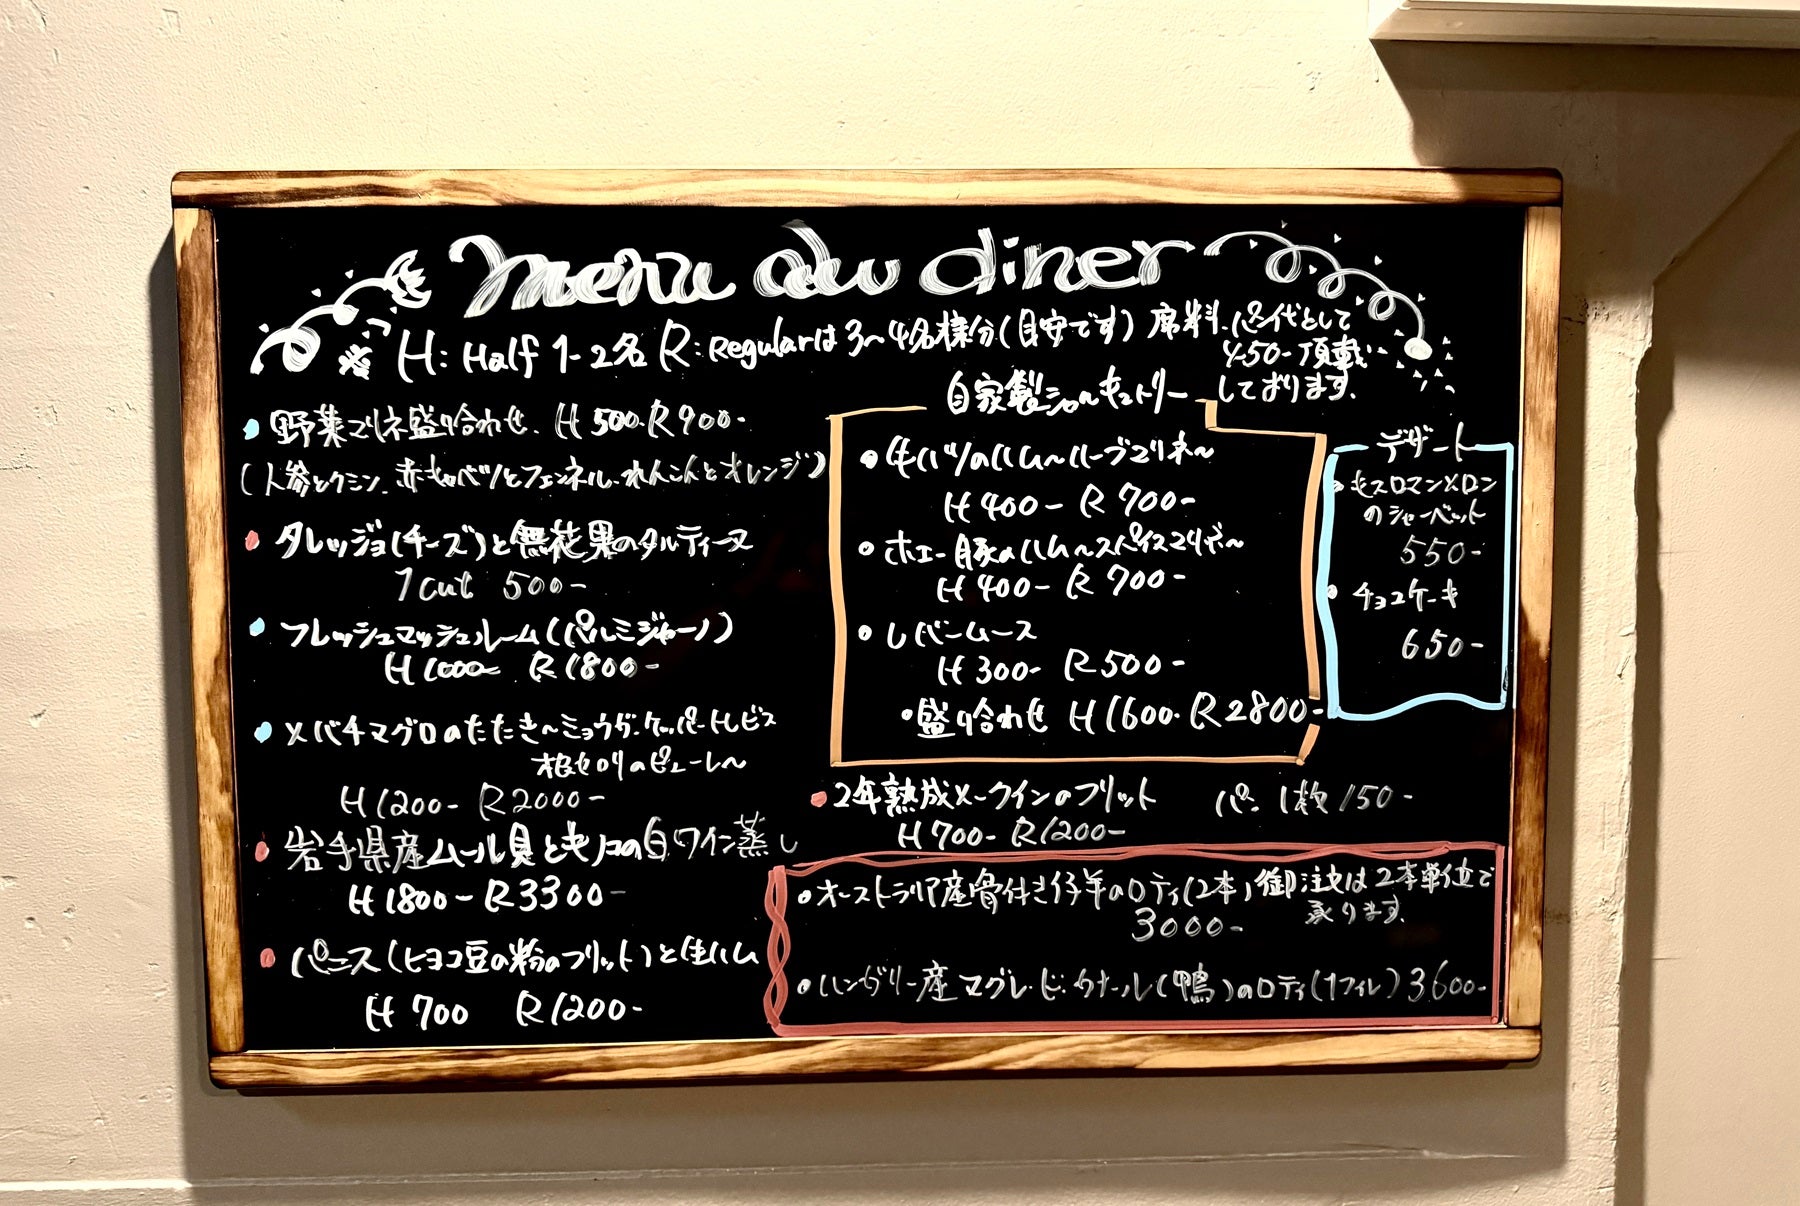 menu du diner
H: Half 1-2名 R: Regularは3〜4名様分(目安です) 席料.パン代として
450-頂戴
しております.
野菜マリネ盛り合わせ. H 500. R 900-
(人参とクミン. 赤キャベツとフェンネル. れんこんとオレンジ)
タレッジョ(チーズ)と無花果のタルティーヌ
1cut 500-
フレッシュマッシュルーム(パルミジャーノ)
H 1000- R 1800-
メバチマグロのたたき〜ミョウガ.ケッパー.トレビス
根セロリのピューレ〜
H 1200- R 2000-
岩手県産ムール貝とキノコの白ワイン蒸し
H 1800- R 3300-
パニス(ヒヨコ豆の粉のフリット)と生ハム
H 700 R 1200-
自家製シャルキュトリー
牛ハツのハム〜ハーブマリネ〜
H 400- R 700-
ホエー豚のハム〜スパイスマリネ〜
H 400- R 700-
レバームース
H 300- R 500-
盛り合わせ H 1600. R 2800-
デザート
キスロマンメロン
のシャーベット
550-
チョコケーキ
650-
2年熟成メークインのフリット
H 700- R 1200-
パン 1枚 150-
オーストラリア産骨付き仔羊のロティ(2本) 御注文は2本単位で
承ります.
3000-
ハンガリー産マグレ.ド.カナール(鴨)のロティ(1フィレ) 3600-